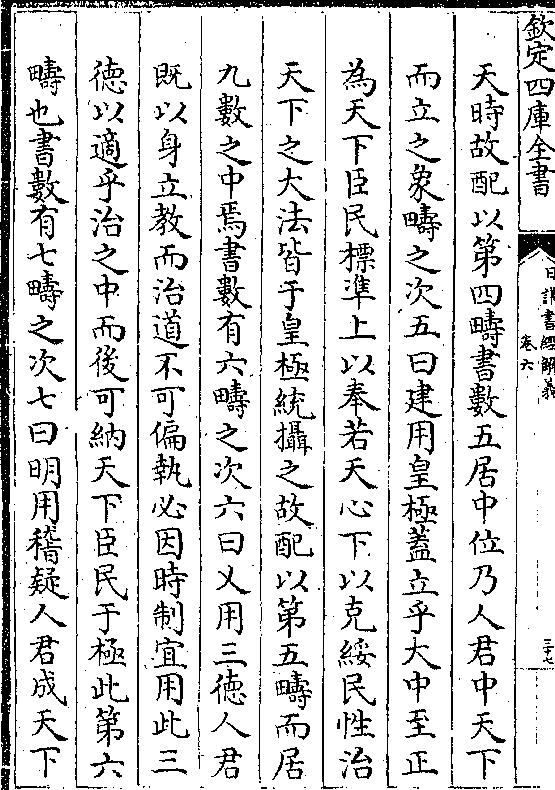 欽定四庫全書
日講書經解義
卷六
三十七
天時故配以第四疇書數五居中位乃人君中天下
而立之象疇之次五曰建用皇極蓋立乎大中至正
為天下臣民標準上以奉若天心下以克綏民性治
天下之大法皆于皇極統攝之故配以第五疇而居
九數之中焉書數有六疇之次六曰乂用三德人君
既以身立教而治道不可偏執必因時制宜用此三
德以適乎治之中而後可納天下臣民于極此第六
疇也書數有七疇之次七曰明用稽疑人君成天下